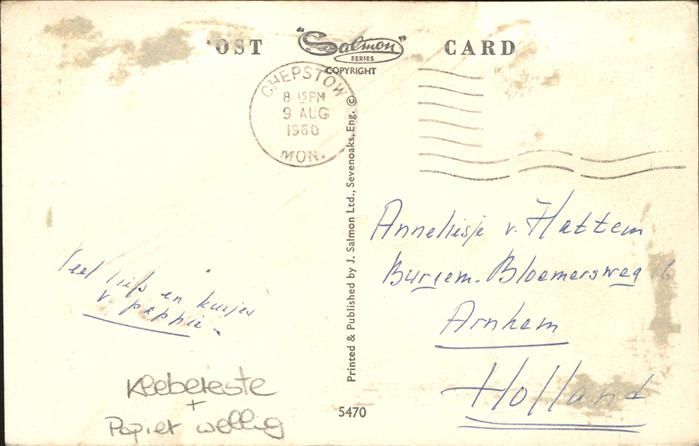 POST "Salmon" CARD
SERIES
COPYRIGHT
CHEPSTOW
8 15 PM
9 AUG
1960
MON.
Printed & Published by J. Salmon Ltd., Sevenoaks, Eng. ©
Veel liefs en kusjes
v. pappie.
Anneliesje v. Hattem
Burgem. Bloemersweg 6
Arnhem
Holland
Klebereste
+
Papier wellig
5470